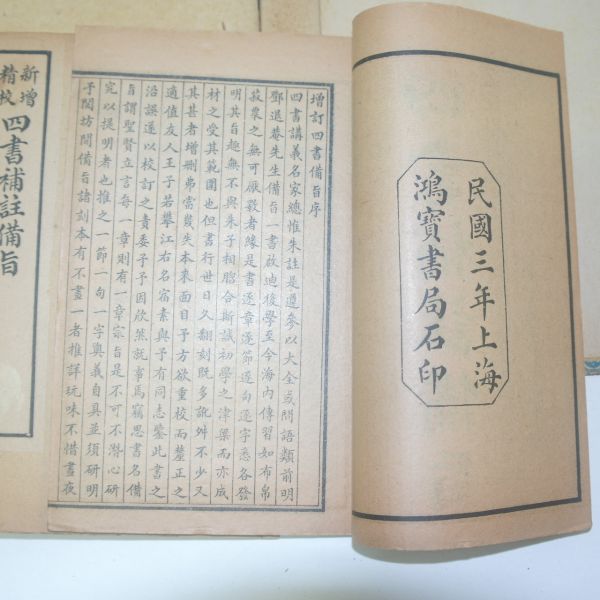 民國三年上海
鴻寶書局石印
增訂四書備旨序
四書講義名家總惟朱註是遵參以大全或問語類前明
鄧退菴先生備旨一書啟迪後學至今海內傳習如布帛
菽粟之無可厭斁者緣是書逐章逐節逐句逐字悉各發
明其旨趣無不與朱子相脗合斯誠初學之津梁而亦成
材之受其範圍也但書行世日久翻刻既多訛舛不少又
其甚者增刪弗當幾失本來面目予方欲重校而釐正之
適值友人王子若攀江右名宿素與予有同志鑒此書之
沿誤遂以校訂之責委予予因欣然就事焉竊思書名備
旨謂聖賢立言每一章則有一章宗旨是不可不潛心研
究以提明者也推之一節一句一字奧義自具並須研明
予閱坊間備旨諸刻本有不盡一者推詳玩味不惜晝夜
新增
精校
四書補註備旨